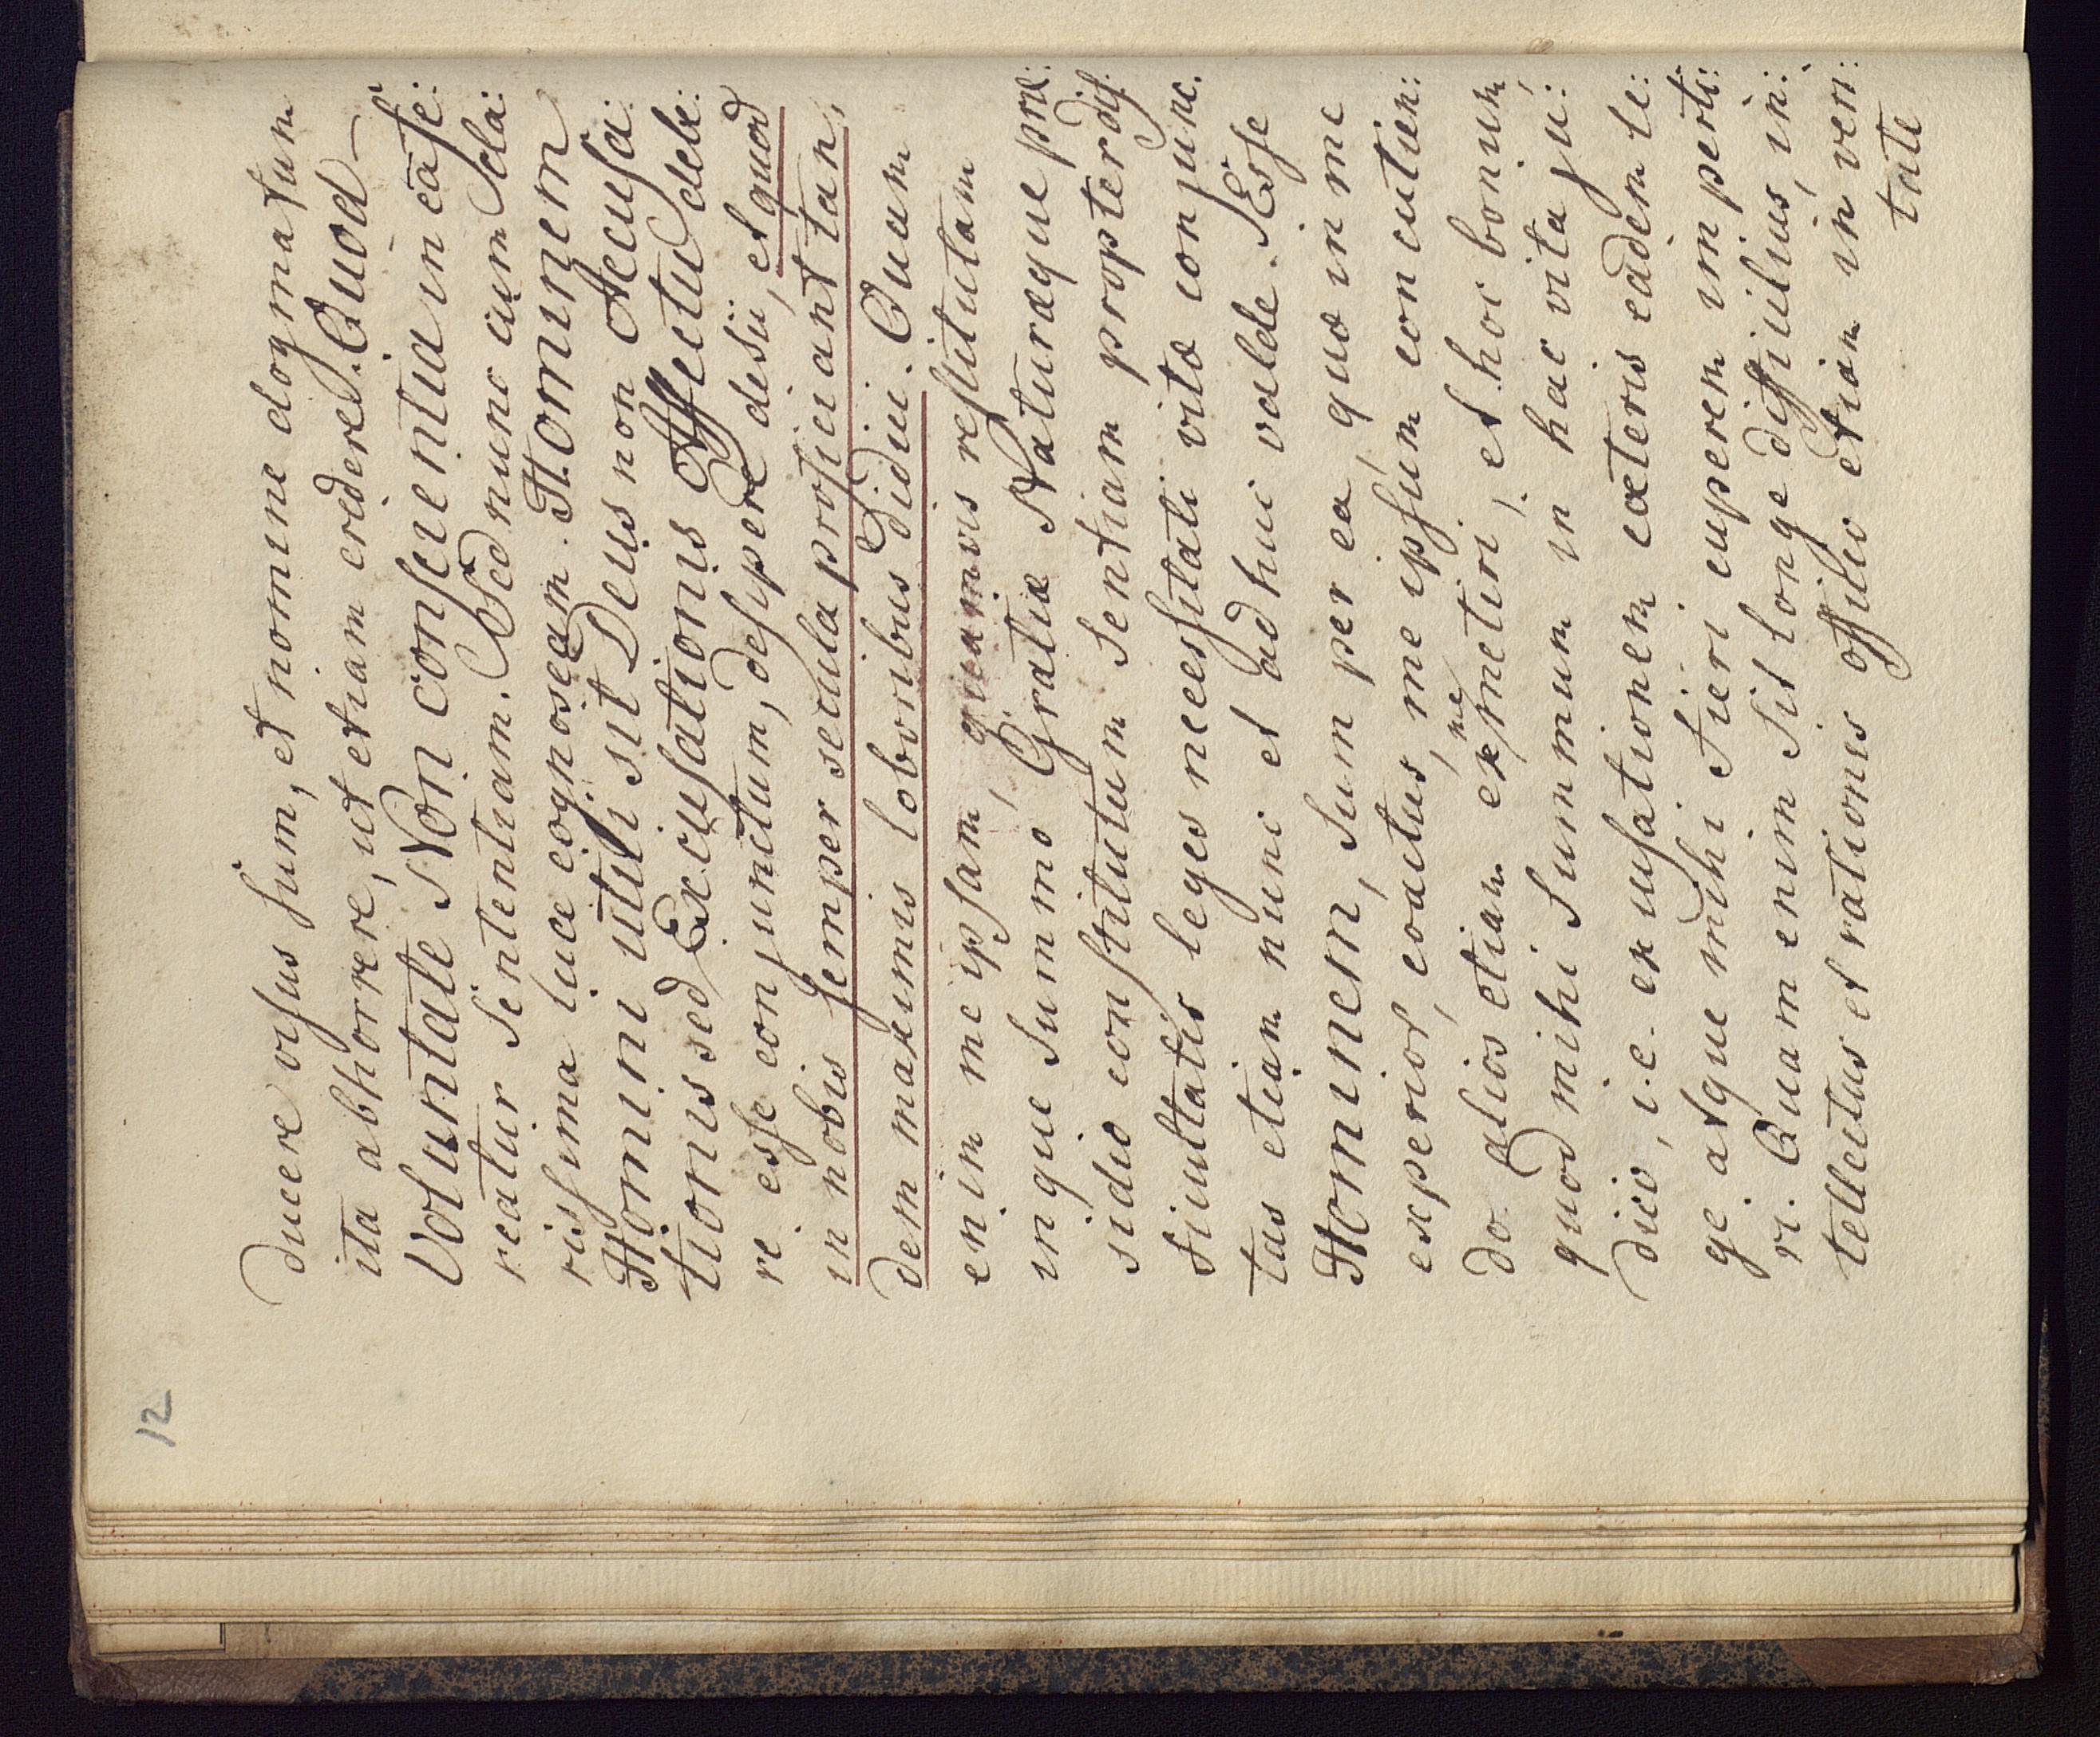 12
ducere visus sum, et nomine dogmatum
ita abhorrere, ut etiam crederē. Quod
Voluntate Non conscientia in ea fe:
reatur Sententiam. Sed nunc cum cla:
rissima luce cognoscam Hominem
Homini utili sit Deus non Accusa:
tionis sed Excusationis Affectu debe:
re esse conjunctum, desipere desii, et quod
in nobis semper secula proficiant tan,
dem maxumis loboribus didici. Quum
enim me ipsam, quamvis restitutam
inque Summo, Gratiæ Naturæque præ:
sidio constitutum Sentiam propter dif.
ficultatis leges necessitati vitæ conjunc.
tas etiam nunc et adhuc valde. Esse
Hominem, Sum per ea, quæ in me
experior, coactus, me ipsum concutien:
do alios etiam ex me metiri, et hoc bonum,
quod mihi Summum in hac vita ju:
dico, i.e. excusationem cæteris eadem le:
ge atque mihi Fieri cuperem imperti:
ri. Quam enim Sit longe difficilius, in:
tellectus et rationis officio etiam in veri:
tate